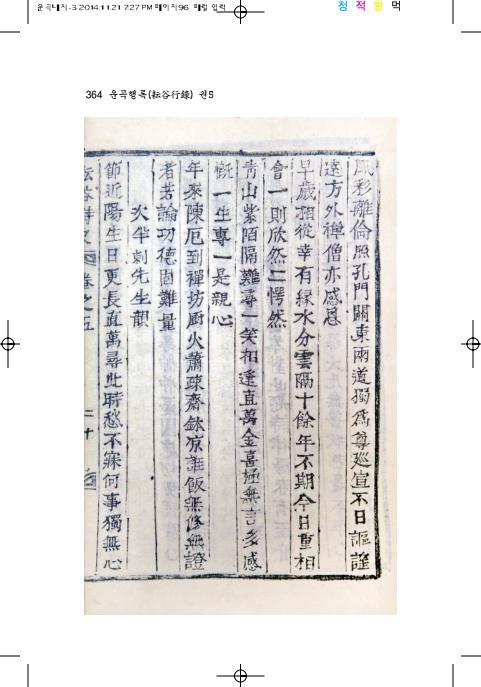 운곡내지-3 2014.11.21 7:27 PM 페이지96 매일 입력
청 적 황 먹
364 운곡행록(耘谷行錄) 권5
風彩離倫照孔門關東兩道獨爲尊巡宣不日謳謠
遠方外禪僧亦感恩
早歲相從幸有緣水分雲隔十餘年不期今日重相
會一則欣然二愕然
靑山紫陌隔難尋一笑相逢直萬金喜極無言多感
慨一生專一是親心
年來陳厄到禪坊廚火蕭疎齋鉢凉誰飯無修無證
者若論功德固難量
次半刺先生韻
節近陽生日更長直萬尋此時愁不寐何事獨無心
耘谷詩史 卷之五 二十